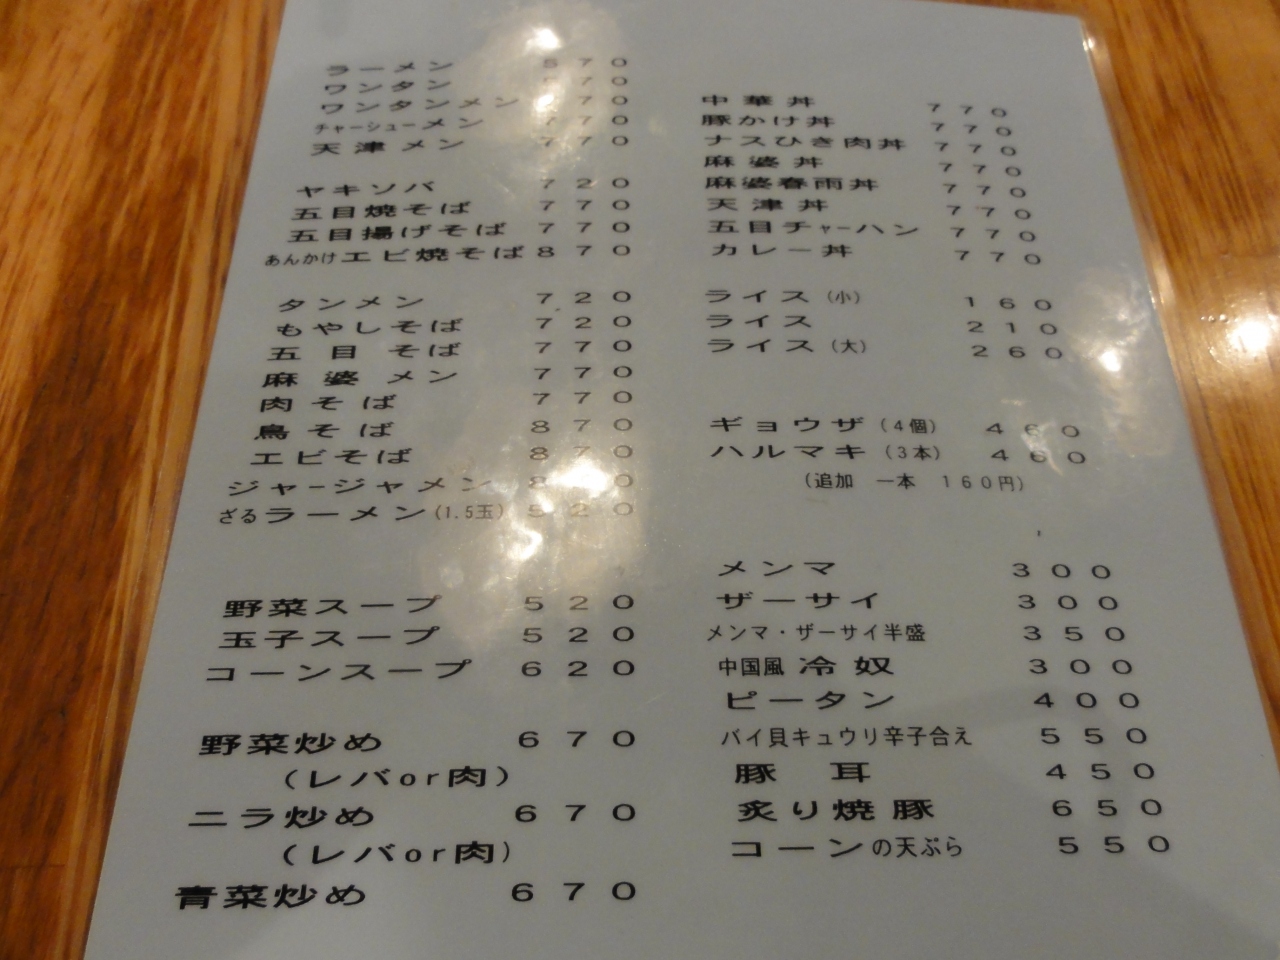 ラーメン 570
ワンタン 70
ワンタンメン 70
チャーシューメン 770
天津メン 770
ヤキソバ 720
五目焼そば 770
五目揚げそば 770
あんかけエビ焼そば 870
タンメン 720
もやしそば 720
五目そば 770
麻婆メン 770
肉そば 770
鳥そば 870
エビそば 870
ジャージャメン
ざるラーメン(1.5玉) 520
野菜スープ 520
玉子スープ 520
コーンスープ 620
野菜炒め 670
(レバor肉)
ニラ炒め 670
(レバor肉)
青菜炒め 670
中華丼 770
豚かけ丼 770
ナスひき肉丼 770
麻婆丼 770
麻婆春雨丼 770
天津丼 770
五目チャーハン 770
カレー丼 770
ライス(小) 160
ライス 210
ライス(大) 260
ギョウザ(4個) 460
ハルマキ(3本) 460
(追加 一本 160円)
メンマ 300
ザーサイ 300
メンマ・ザーサイ半盛 350
中国風 冷奴 300
ピータン 400
バイ貝キュウリ辛子合え 550
豚耳 450
炙り焼豚 650
コーンの天ぷら 550